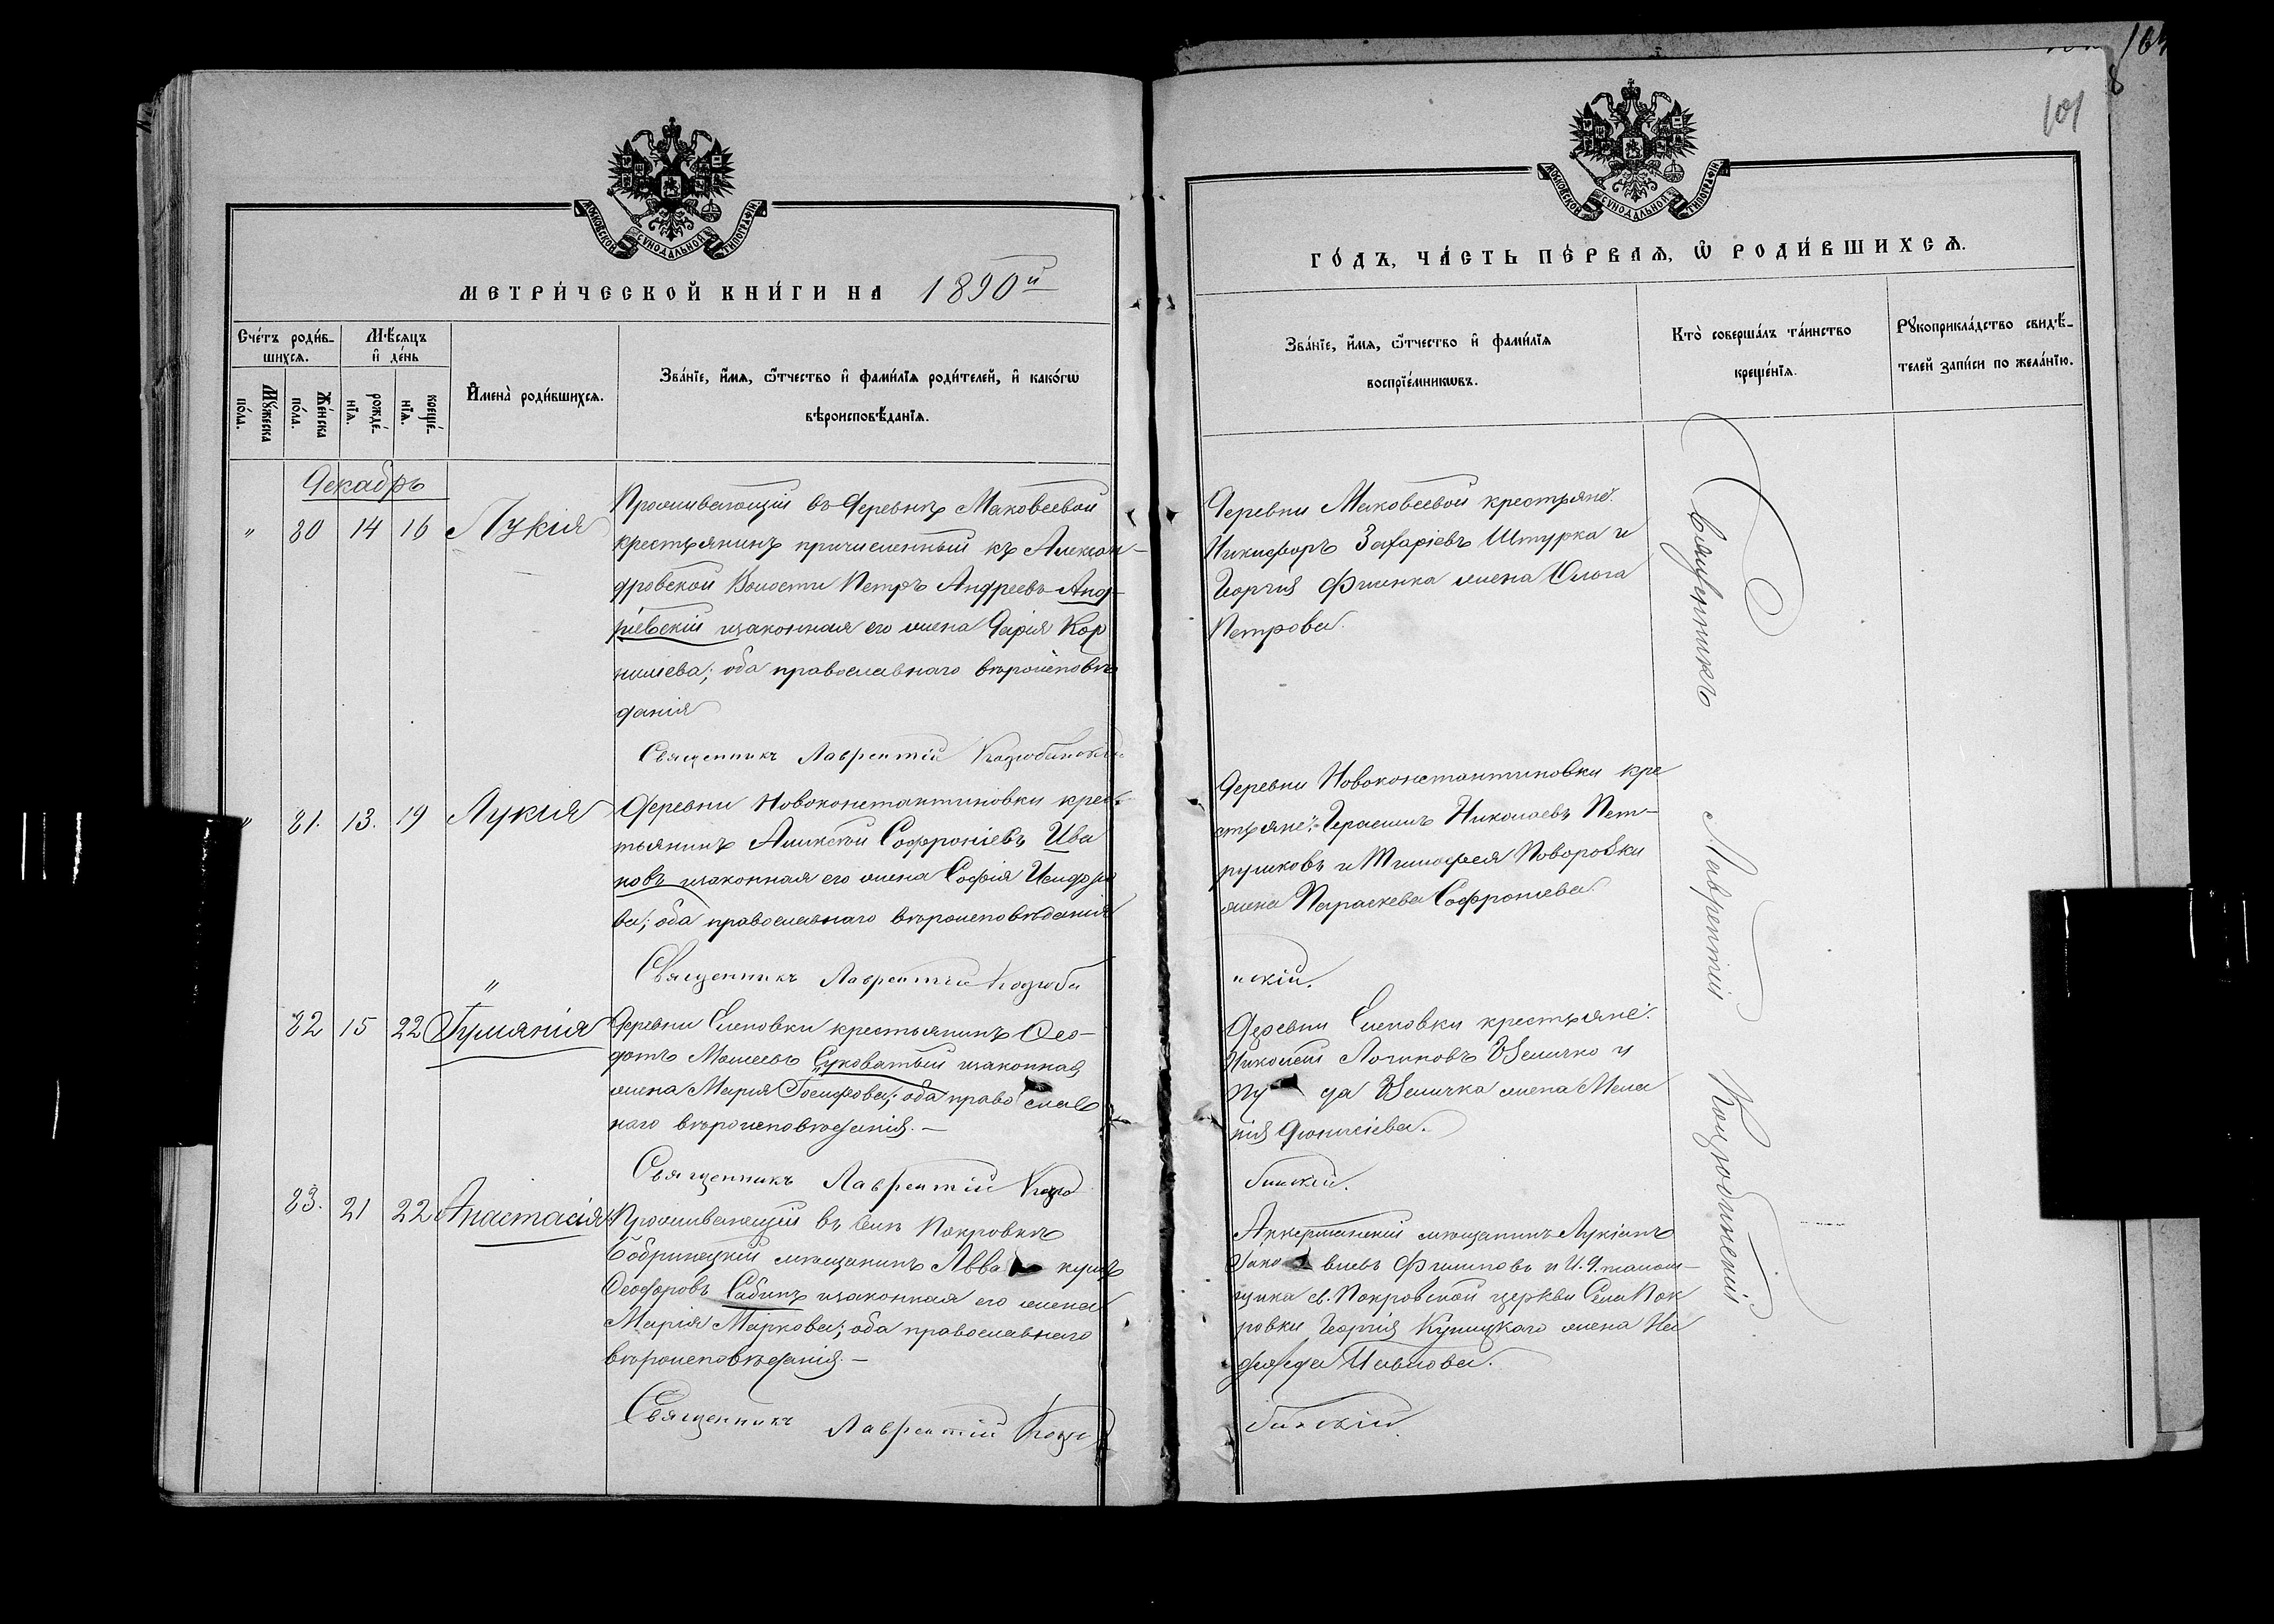 101
МОСКОВСКОЙ СѴНОДАЛЬНОЙ ТИПОГРАФІИ
МЕТРИ́ЧЕСКОЙ КНИ́ГИ НА 1890й
Сче́тъ роди́в-
шихсѧ.
Мꙋ́жеска по́ла.
Же́нска по́ла.
Мѣ́сѧцъ и҆ де́нь
рожде́-
нїѧ.
креще́-
нїѧ.
И҆мена̀ роди́вшихсѧ.
Зва́нїе, и҆́мѧ, ѻ҆́тчество и҆ фами́лїѧ роди́телей, и҆ како́гѡ
вѣроисповѣ́данїѧ.
Декабрь
" 80 14 16 Лукія
Проживающій въ деревнѣ Маковеевой
крестьянинъ причисленный къ Алексан-
дровской Волости Петръ Андреевъ Анд-
ріевскій изаконная его жена Дарія Кор
нилieва; оба православнаго вѣроисповѣ
данія
Священникъ Лаврентій Коцюбинскій
" 81. 13. 19 Лукія
Деревни Новоконстантиновки крес-
тьянинъ Алексѣй Софроніевъ Ива
новъ изаконная его жена Софія Исидоро
ва; оба православнаго вѣроисповѣданія
Священникъ Лаврентій Коцюби
"
82 15 22 Іуліанія
Деревни Еленовки крестьянинъ Ѳео-
дотъ Моисеевъ Суховатый изаконная
жена Марія Іосифова; оба православ
наго вѣроисповѣданія. —
Священникъ Лаврентій Коцю
83. 21 22 Анастасія
Проживающій въ селѣ Покровкѣ
Бобринецкій мѣщанинъ Авва кумъ
Ѳеодоровъ Сабинъ изаконная его жена
Марія Маркова; оба православнаго
вѣроисповѣданія. —
Священникъ Лаврентій Коцю
МОСКОВСКОЙ СѴНОДАЛЬНОЙ ТИПОГРАФІИ
ГО́ДЪ, ЧА́СТЬ ПЕ́РВАѦ, Ѽ РОДИ́ВШИХСѦ.
Зва́нїе, и҆́мѧ, ѻ҆́тчество и҆ фами́лїѧ
воспрїе́мникѡвъ.
Кто̀ соверша́лъ та́инство
креще́нїѧ.
Рꙋкоприкла́дство свидѣ́-
телей за́писи по жела́нїю.
Деревни Маковеевой крестьяне:
Никифоръ Захаріевъ Штурка и
Георгія Филенка жена Ольга
Петрова.
Деревни Новоконстантиновки кре
стьяне: Герасимъ Николаевъ Пет-
рушковъ и Тимофея Поворовки
жена Параскева Софроніева
нскій.
Деревни Еленовки крестьяне:
Николай Логиновъ Величко и
Величка жена Мела
нія Діонисіева.
бинскій.
Аккерманскій мѣщанинъ Лукіанъ
Іако влевъ Филиповъ и И. д. псалом-
щика св. Покровской церкви Села Пок
ровки Георгія Куницкаго жена На
дежда Павлова.
бинскій.
Священникъ Лаврентій Коцюбинскій